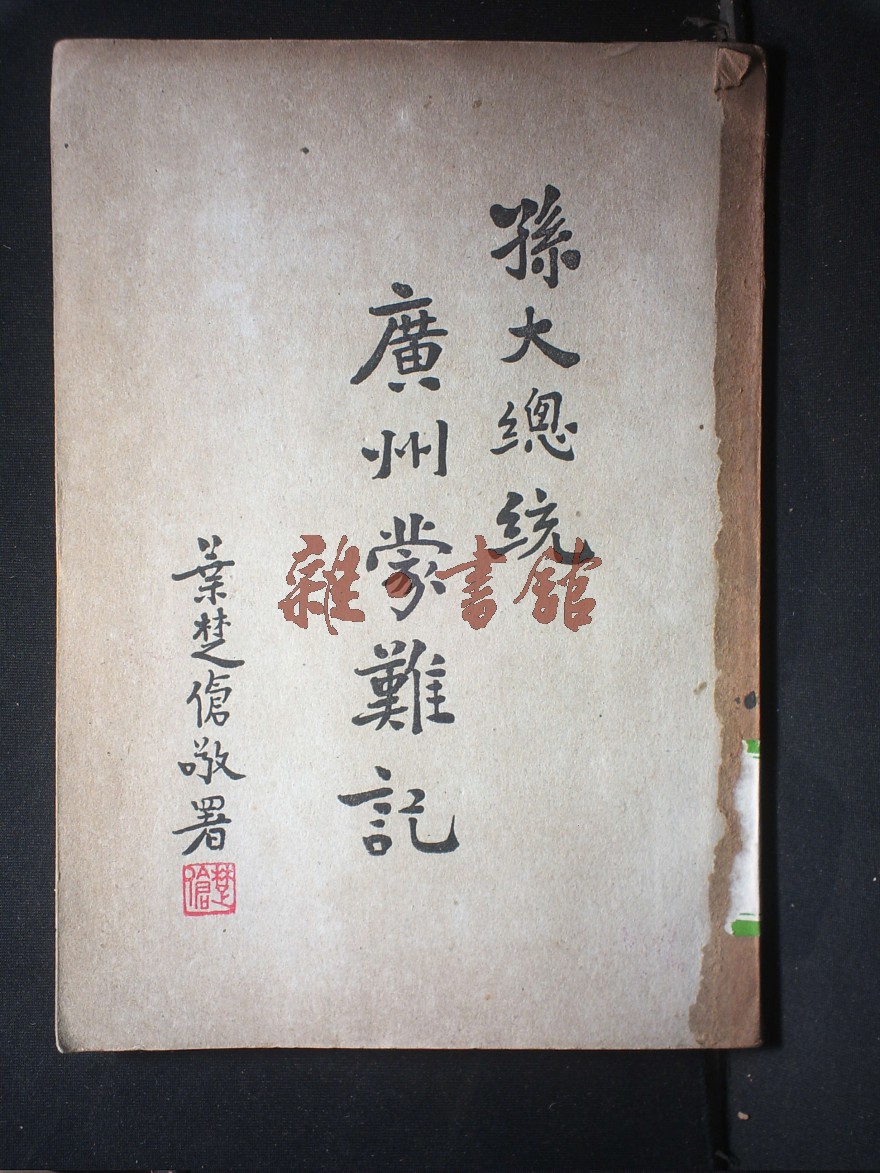 孫大總統
廣州蒙難記
葉楚傖敬署
楚傖
雜·書館